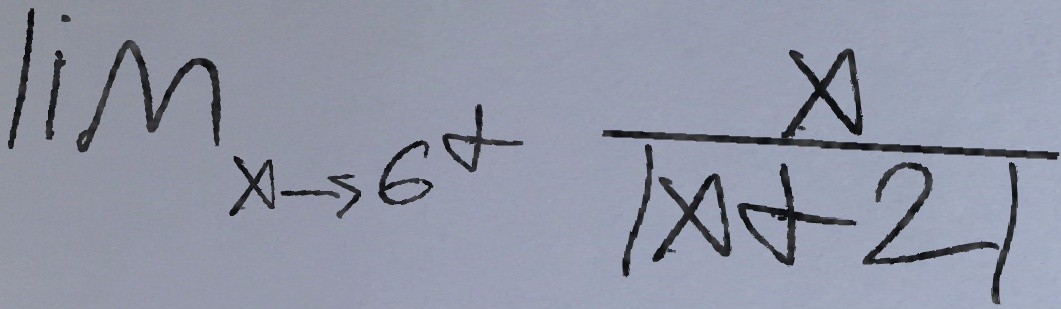 lim x→6⁺ x/|x+2|